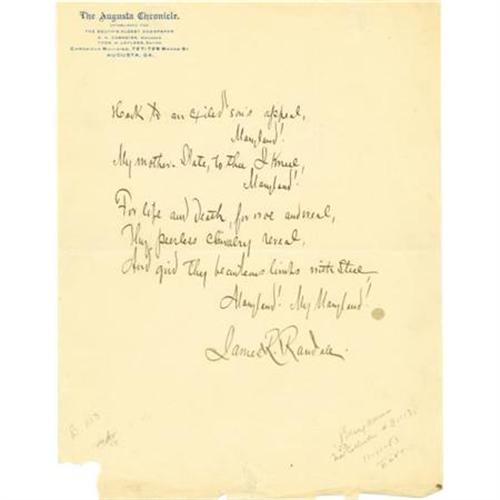 The Augusta Chronicle.
ESTABLISHED 1785
THE SOUTH'S OLDEST NEWSPAPER
AUGUSTA, GA.
Hark to an exiled son's appeal,
Maryland!
My mother State, to thee I kneel,
Maryland!
For life and death, for woe and weal,
Thy peerless chivalry reveal,
And gird thy beauteous limbs with steel,
Maryland! My Maryland!
James R. Randall.